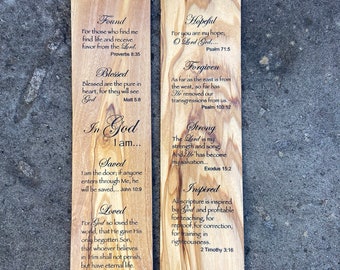 Found
For those who find me
find life and receive
favor from the Lord.
Proverbs 8:35
Blessed
Blessed are the pure in
heart, for they will see
God
Matt 5:8
In God
I am...
Saved
I am the door; if anyone
enters through Me, he
will be saved,... John 10:9
Loved
For God so loved the
world, that He gave His
only begotten Son,
that whoever believes
in Him shall not perish,
but have eternal life.
Hopeful
For you are my hope,
O Lord God...
Psalm 71:5
Forgiven
As far as the east is from
the west, so far has
He removed our
transgressions from us.
Psalm 103:12
Strong
The Lord is my
strength and song,
And He has become
my salvation.
Exodus 15:2
Inspired
All scripture is inspired
by God and profitable
for teaching, for
reproof, for correction,
for training in
righteousness.
2 Timothy 3:16